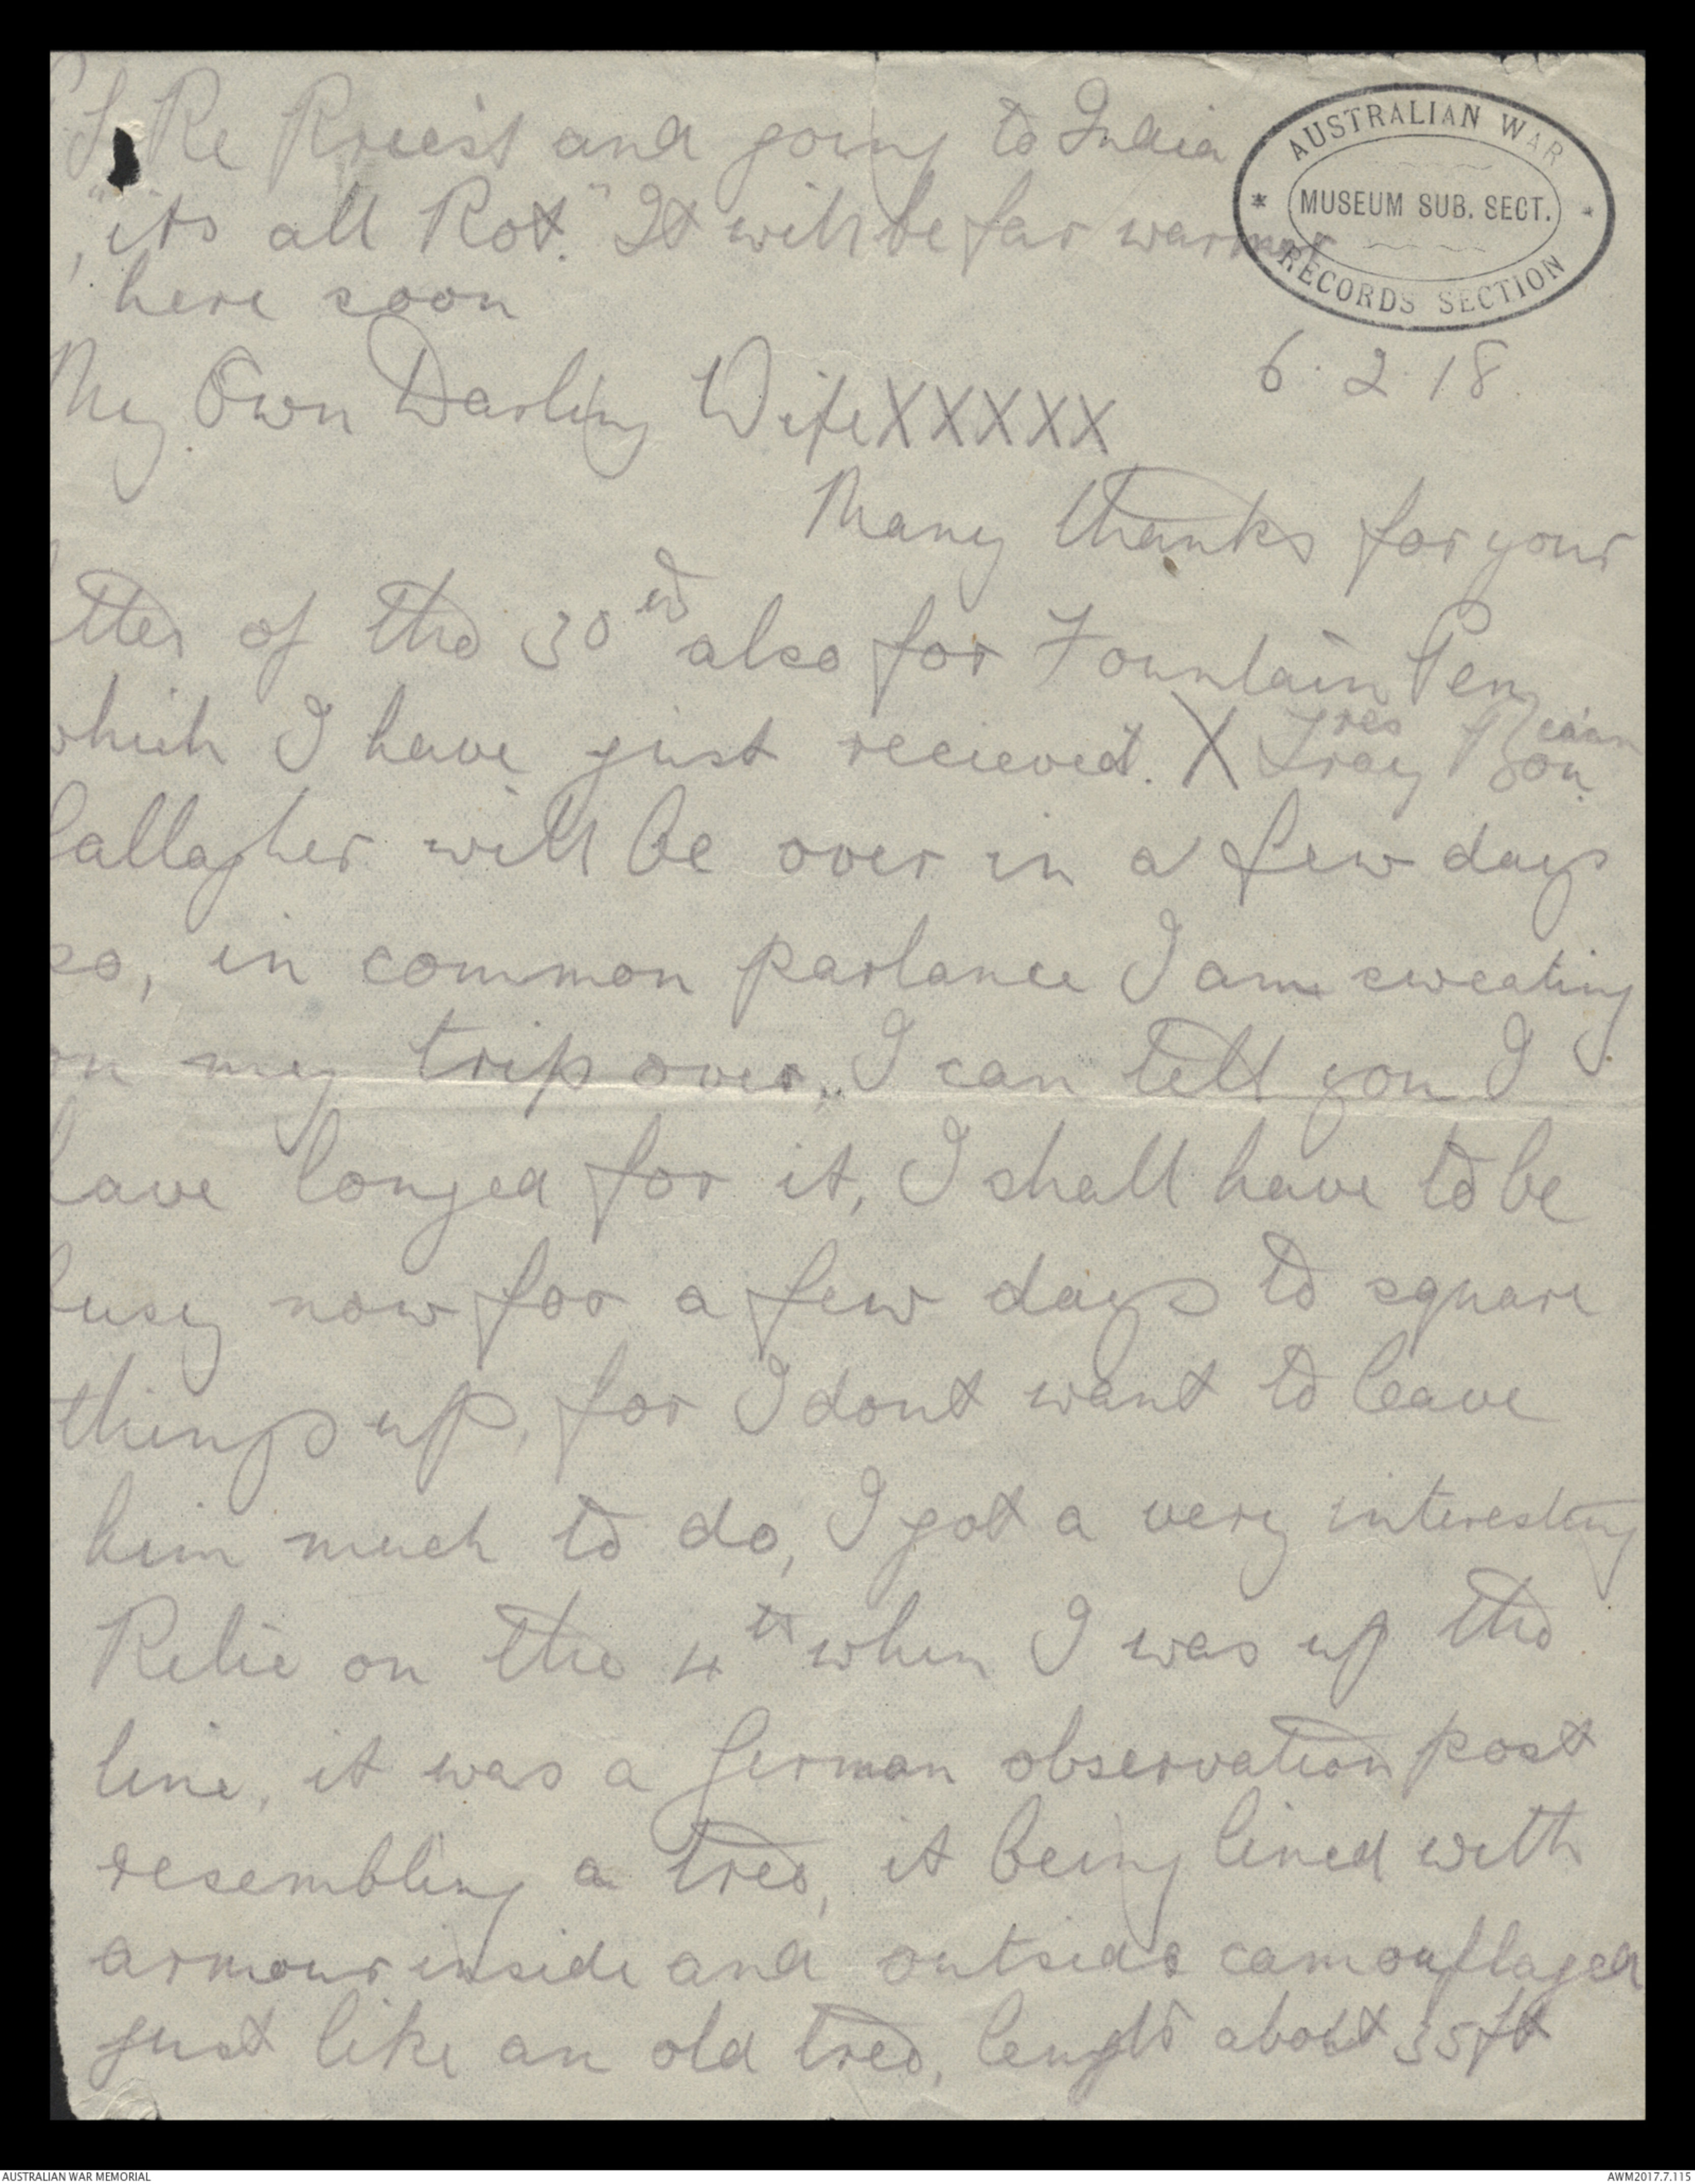 Re Priest and going to India
"its all Rot." It will be far warmer
here soon
AUSTRALIAN WAR
MUSEUM SUB. SECT.
RECORDS SECTION
6.2.18.
My Own Darling Wife XXXXX
Many thanks for your
etter of the 30th also for Fountain Pen
which I have just recieved. X Tres
Gallagher will be over in a few days
so, in common parlance I am sweating
on my trip over, I can tell you I
have longed for it, I shall have to be
busy now for a few days to square
things up, for I dont want to leave
him much to do, I got a very interesting
Relic on the 4th when I was up the
line, it was a German observation post
resembling a tree, it being lined with
armour inside and outside camouflaged
just like an old tree, length about 35ft
AUSTRALIAN WAR MEMORIAL
AWM2017.7.115